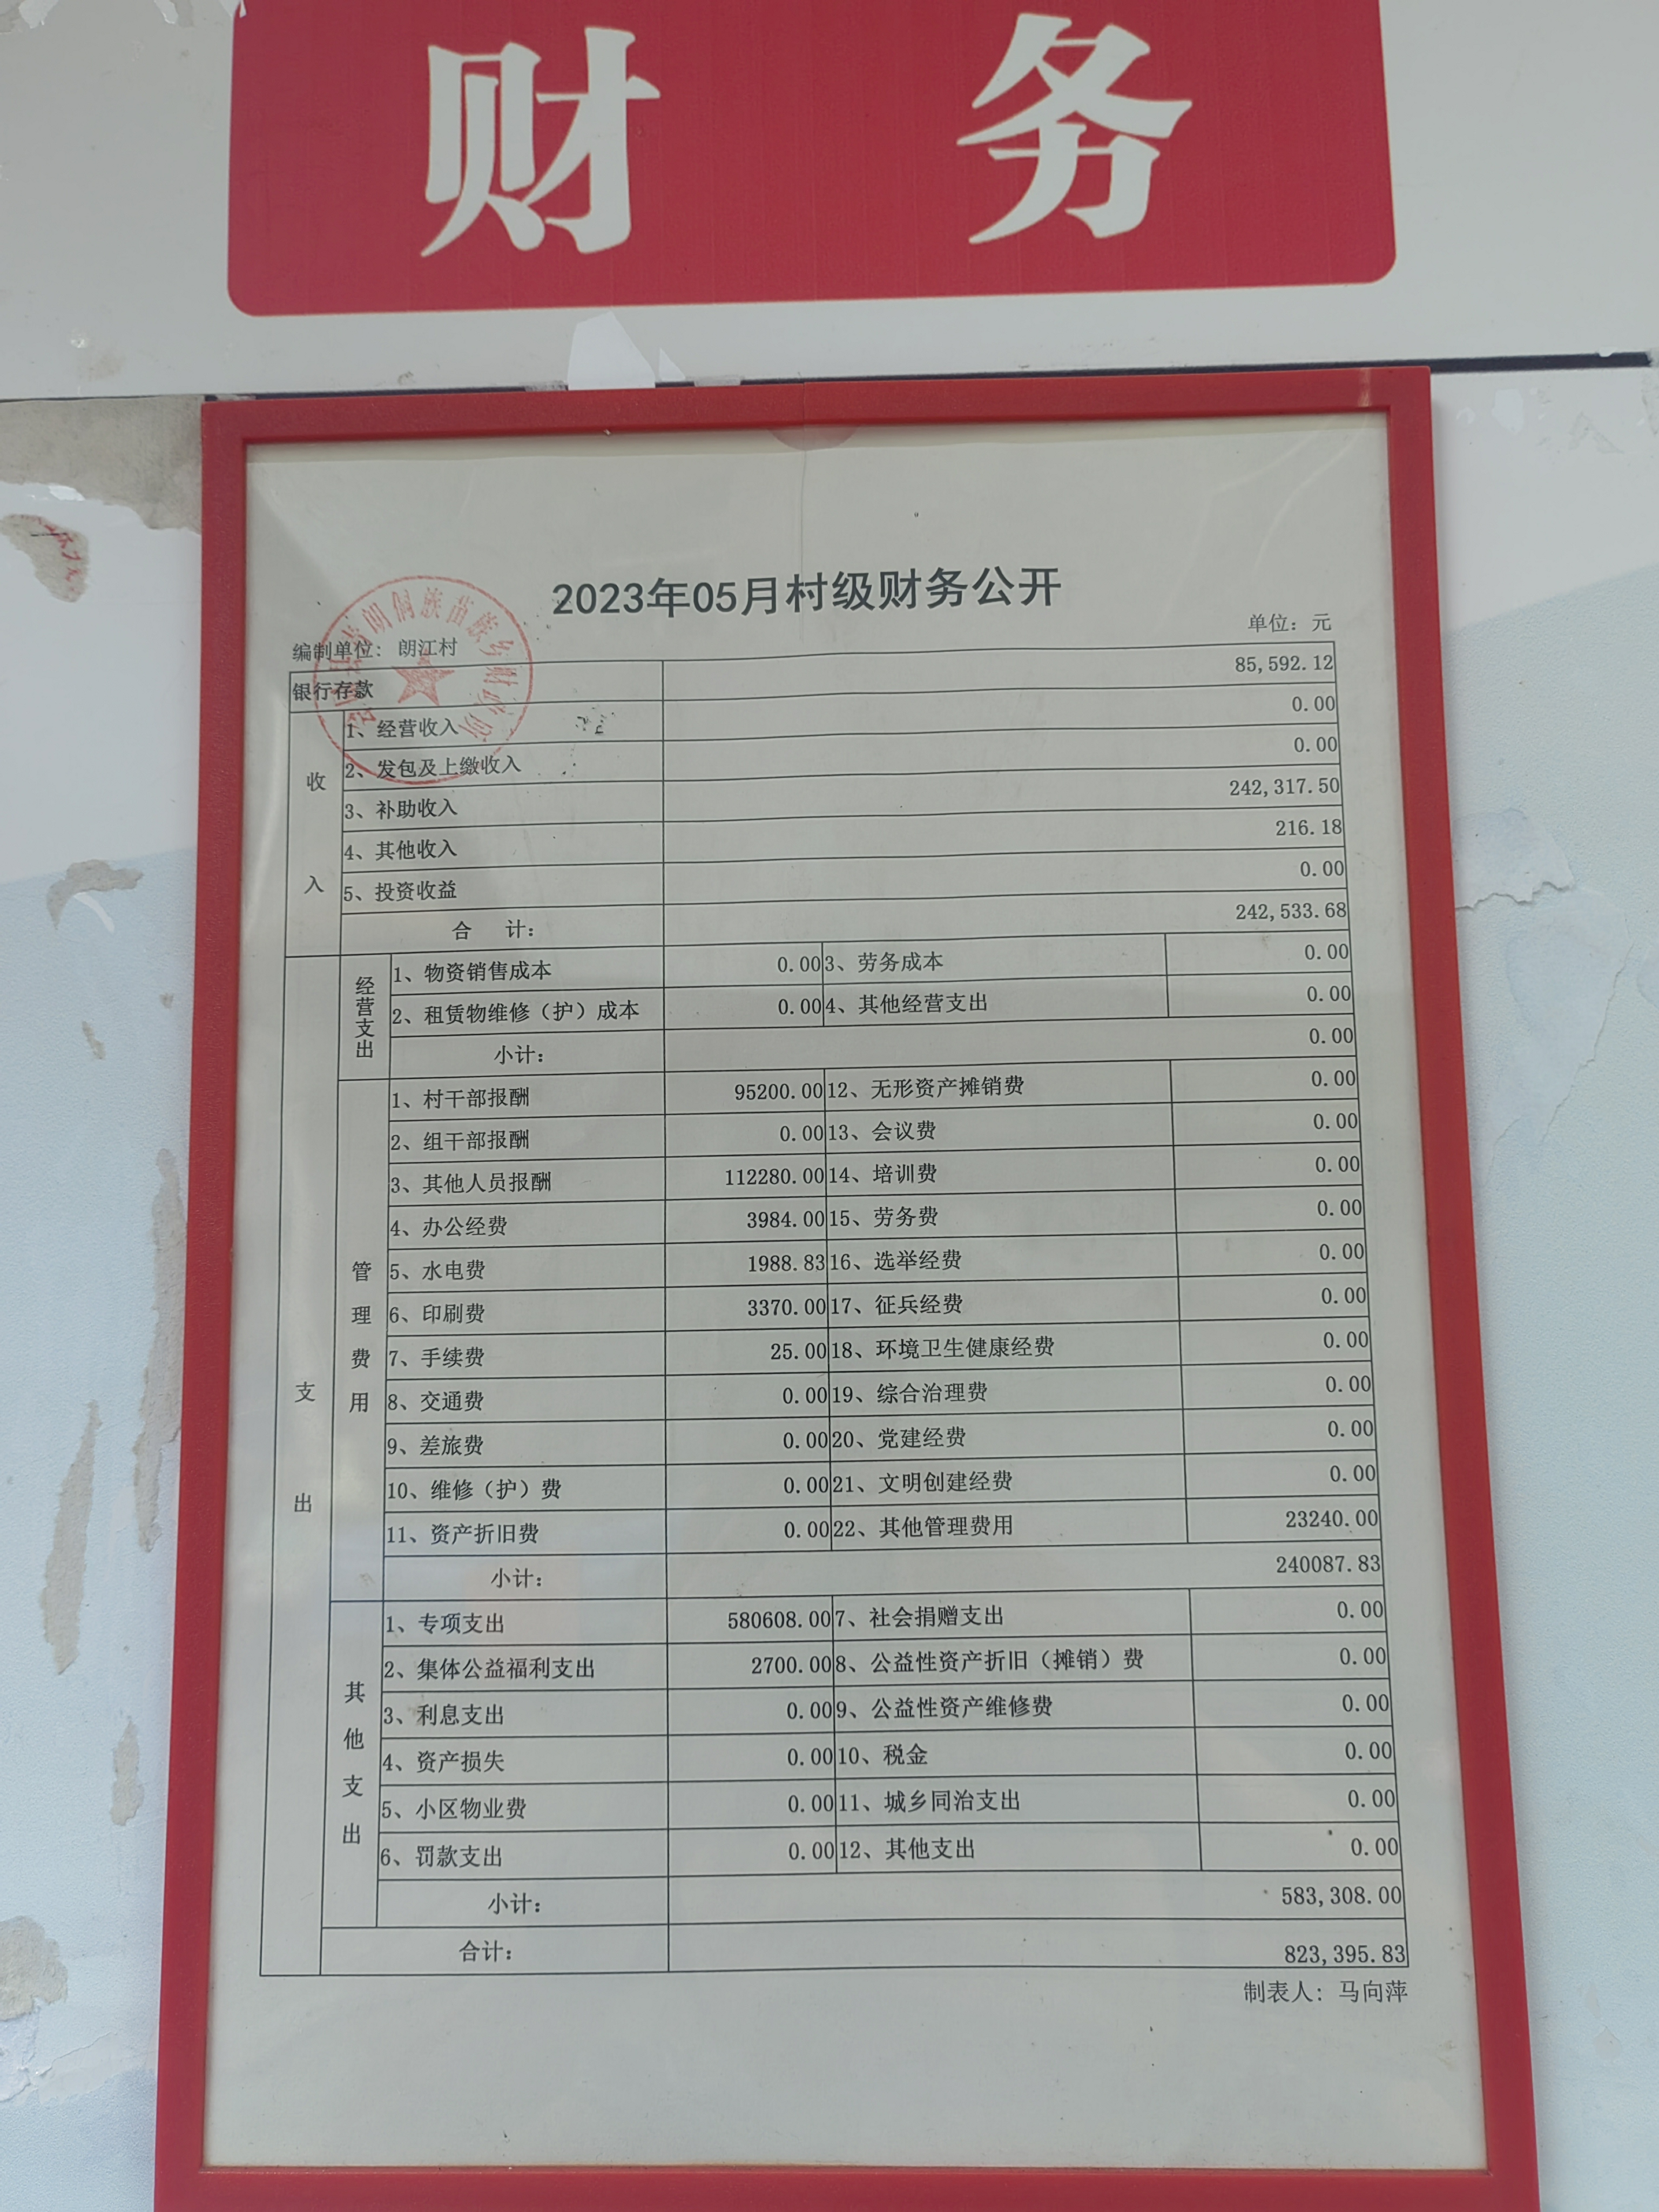 财 务
2023年05月村级财务公开
编制单位：朗江村 单位：元
银行存款 85,592.12
收入
1、经营收入 0.00
2、发包及上缴收入 0.00
3、补助收入 242,317.50
4、其他收入 216.18
5、投资收益 0.00
合 计： 242,533.68
支出
经营支出
1、物资销售成本 0.00 3、劳务成本 0.00
2、租赁物维修（护）成本 0.00 4、其他经营支出 0.00
小计： 0.00
管理费用
1、村干部报酬 95200.00 12、无形资产摊销费 0.00
2、组干部报酬 0.00 13、会议费 0.00
3、其他人员报酬 112280.00 14、培训费 0.00
4、办公经费 3984.00 15、劳务费 0.00
5、水电费 1988.83 16、选举经费 0.00
6、印刷费 3370.00 17、征兵经费 0.00
7、手续费 25.00 18、环境卫生健康经费 0.00
8、交通费 0.00 19、综合治理费 0.00
9、差旅费 0.00 20、党建经费 0.00
10、维修（护）费 0.00 21、文明创建经费 0.00
11、资产折旧费 0.00 22、其他管理费用 23240.00
小计： 240087.83
其他支出
1、专项支出 580608.00 7、社会捐赠支出 0.00
2、集体公益福利支出 2700.00 8、公益性资产折旧（摊销）费 0.00
3、利息支出 0.00 9、公益性资产维修费 0.00
4、资产损失 0.00 10、税金 0.00
5、小区物业费 0.00 11、城乡同治支出 0.00
6、罚款支出 0.00 12、其他支出 0.00
小计： 583,308.00
合计： 823,395.83
制表人：马向萍
朗侗族苗族乡财政所